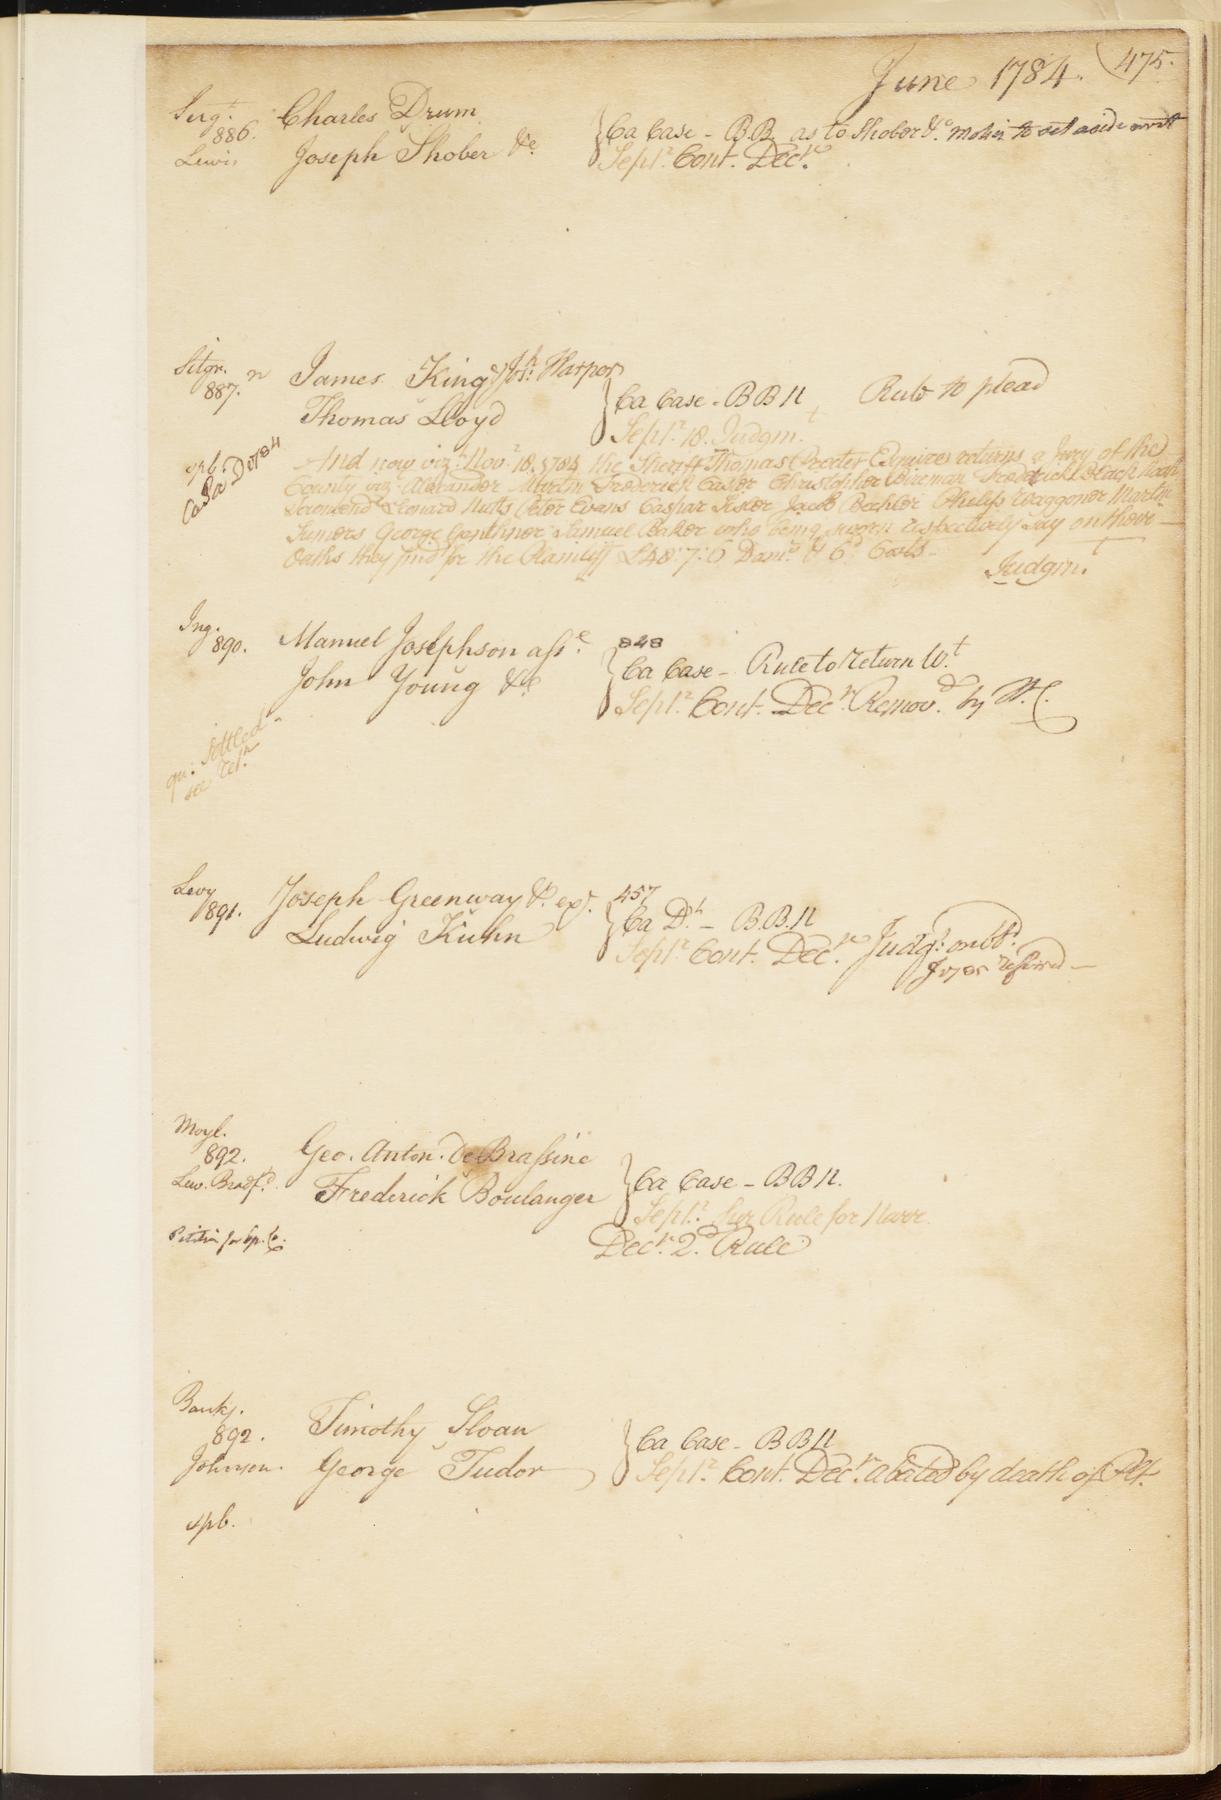 June 1784. (475.
Serg.t
886.
Lewis
Charles Drum
Joseph Shober &c
Ca Case - B.B. as to Shober &c. motion to set aside writ
Sept.r Cont. Dec.r
Sitgr.
887. n
James King & Jos.h Harper
Thomas Lloyd
Ca Case - B B N Rule to plead
Sept.r 18. Judgm.t
spb.
Ca Sa D 0784
And now viz.t Nov.r 18. 1784 the Sheriff Thomas Procter Esquire returns a Jury of the
County viz Alexander Martin Frederick Gasler Christopher Wireman Frederick
Leonard Nutts Peter Evans Caspar Jacob Bechler Philip Waggoner Martin
Sumers George Genthner Samuel Baker who being sworn respectively say on their
Oaths they find for the Plaintiff £48:7:6 Dam.s & 6.d Costs
Judgm.t
Ing.
890.
Manuel Josephson ass.e
John Young &c
848
Ca Case - Rule to return W.t
Sept.r Cont. Dec.r Remov.d by
qu: settled
see
Levy
891.
Joseph Greenway & ex.r
Ludwig Kuhn
457
Ca D.t - B.B.N
Sept.r Cont. Dec.r Judg.t
Moyl.
892.
Lew. Bradf.d
Geo. Anton. De Brassine
Frederick Boulanger
Ca Case - B B N.
Sept.r Sur Rule for Narr.
Dec.r 2.d Rule
Petition for Sp. Co.
Bankj.
892.
Johnson.
Timothy Sloan
George Tudor
Ca Case - B B N
Sept.r Cont. Dec.r abated by death of Plt.
spb.